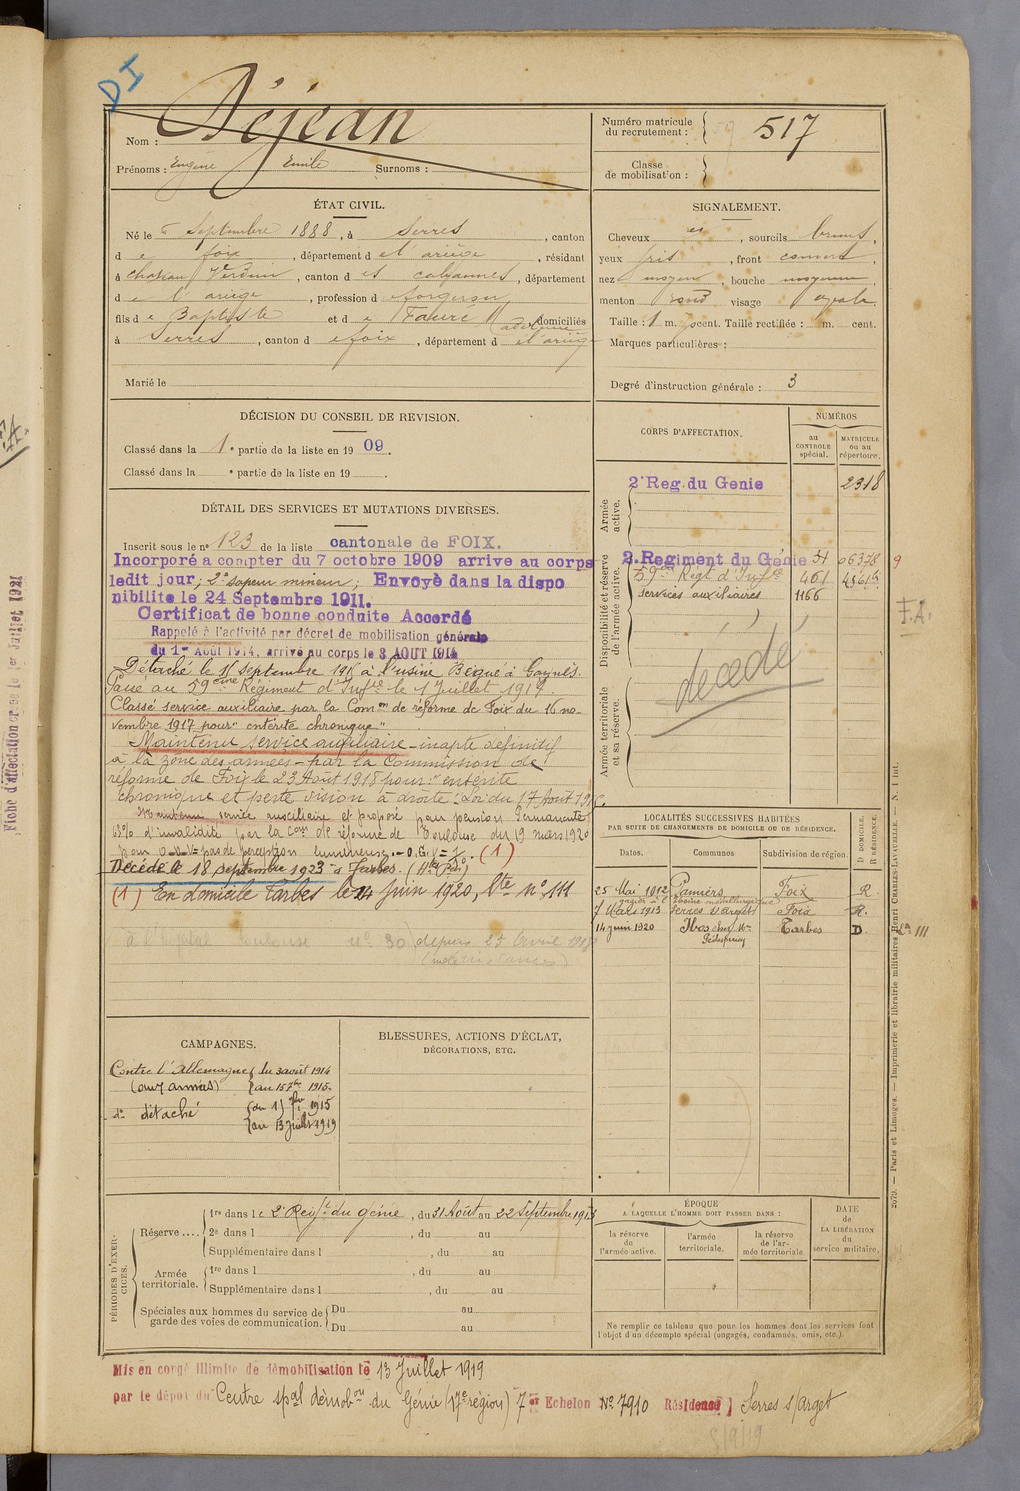 DI
Nom : Déjean
Prénoms : Eugène Emile Surnoms :
Numéro matricule du recrutement : 517
Classe de mobilisation :
ÉTAT CIVIL.
Né le 6 Septembre 1888, à Serres, canton
de foix, département de l'ariège, résidant
à chateau Verdun, canton d es cabannes, département
de l'ariège, profession d forgeron,
fils de Baptiste et de Fauré domiciliés
à Serres, canton de foix, département de l'ariège
Marié le
SIGNALEMENT.
Cheveux , sourcils bruns,
yeux gris, front ,
nez moyen, bouche moyenne
menton rond visage ovale
Taille : 1 m. cent. Taille rectifiée : m. cent.
Marques particulières :
Degré d'instruction générale : 3
DÉCISION DU CONSEIL DE REVISION.
Classé dans la 1e partie de la liste en 1909.
Classé dans la e partie de la liste en 19 .
CORPS D'AFFECTATION.
NUMÉROS
au CONTROLE spécial.
MATRICULE ou au répertoire.
Armée active.
2e Reg. du Genie 2318
Disponibilité et réserve de l'armée active.
2. Regiment du Génie 34 06378 9
59e Régt d'Infie 401
services auxiliaires 1166
F.A.
décédé
Armée territoriale et sa réserve.
DÉTAIL DES SERVICES ET MUTATIONS DIVERSES.
Inscrit sous le no 123 de la liste cantonale de FOIX.
Incorporé a compter du 7 octobre 1909 arrive au corps
ledit jour, 2e sapeur mineur; Envoyé dans la dispo
nibilite le 24 Septembre 1911.
Certificat de bonne conduite Accordé
Rappelé à l'activité par décret de mobilisation générale
du 1er Août 1914, arrivé au corps le 3 AOUT 1914
Détaché le septembre 191 à l'usine
Passé au 59ème Régiment d'Infie le 1 Juillet 1917.
Classé service auxiliaire par la Comon de réforme de Foix du 16 no-
vembre 1917 pour "entérite chronique"
Maintenu service auxiliaire - inapte définitif
à la zône des armées - par la Commission de
réforme de Foix le 23 Août 1918 pour : entérite
chronique et perte vision à droite. Loi du 17 Août 19
Maintenu service auxiliaire et proposé pour pension permanente
d'invalidité par la Comon de réforme de Toulouse du 19 mars 1920
pour O.D.V= pas de perception lumineuse. - O.G.V=1. (1)
Décédé le 18 septembre 1923 à Tarbes.
(1) En domicile Tarbes le 24 Juin 1920, Ste No 111
à l'hopital Toulouse no 30) depuis 25 Avril 1918
LOCALITÉS SUCCESSIVES HABITÉES
PAR SUITE DE CHANGEMENTS DE DOMICILE OU DE RÉSIDENCE.
Dates. Communes Subdivision de région. D DOMICILE, R RÉSIDENCE.
25 Mai 1912 Pamiers Foix R.
7 Mars 1913 Serres s/arget Foix R.
14 juin 1920 Ibos Tarbes D
111
CAMPAGNES.
Contre l'Allemagne du 3 août 1914
(aux armées) au 15 7bre 1915.
do détaché du 1915
au 13 juillet 1919
BLESSURES, ACTIONS D'ÉCLAT,
DÉCORATIONS, ETC.
PÉRIODES D'EXERCICES.
Réserve .... 1re dans le 2e Régt du génie, du 31 Août au 22 Septembre 1913
2e dans l , du au
Supplémentaire dans l , du au
Armée territoriale. 1re dans l , du au
Supplémentaire dans l , du au
Spéciales aux hommes du service de garde des voies de communication. Du au
Du au
ÉPOQUE
A LAQUELLE L'HOMME DOIT PASSER DANS :
la réserve de l'armée active. l'armée territoriale. la réserve de l'armée territoriale
DATE de LA LIBÉRATION du service militaire.
Ne remplir ce tableau que pour les hommes dont les services font
l'objet d'un décompte spécial (engagés, condamnés, omis, etc.).
Mis en congé illimité de démobilisation le 13 Juillet 1919
par le dépôt du Centre spal démobon du Génie (17e région) 7e Echelon No 7910 Résidence Serres s/arget
5/9/19
2679. — Paris et Limoges. — Imprimerie et librairie militaires Henri CHARLES-LAVAUZELLE. — N. 1 Int.
Fiche d'affectation créée le 1er Juillet 1921
F.A.